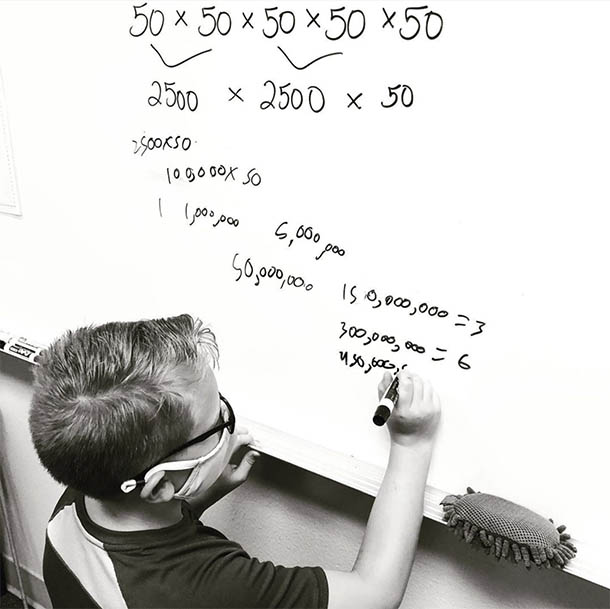 50 × 50 × 50 × 50 × 50
2500 × 2500 × 50
2500x50
100,000x 50
1 1,000,000 5,000,000
50,000,000 150,000,000 = 3
300,000,000 = 6
450,000,0